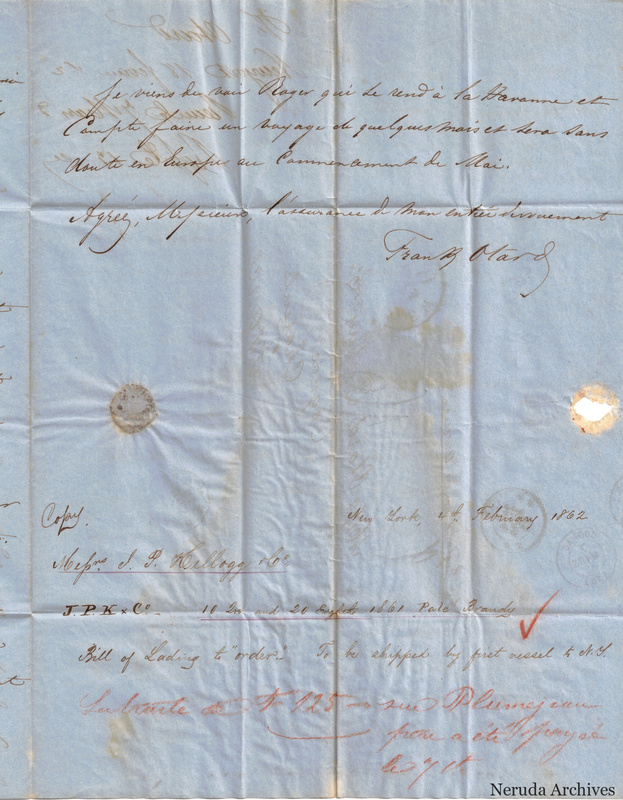 Je viens de voir Roger qui se rend à la Havanne et
Compte faire un voyage de quelques mois et sera sans
doute en Europe au Commencement de Mai.
Agréez, Messieurs, l'assurance de mon entier dévouement
Frank Otard
Copy.
New York, 4th. February 1862
Messrs J. P. Kellogg & Co
J. P. K & Co — 10 Qr and 20 1861 Pale Brandy
Bill of Lading to "order". To be shipped by first vessel to N.Y.
La traite de 125 — sur Plumejeau
a été
le 7 ct
Neruda Archives